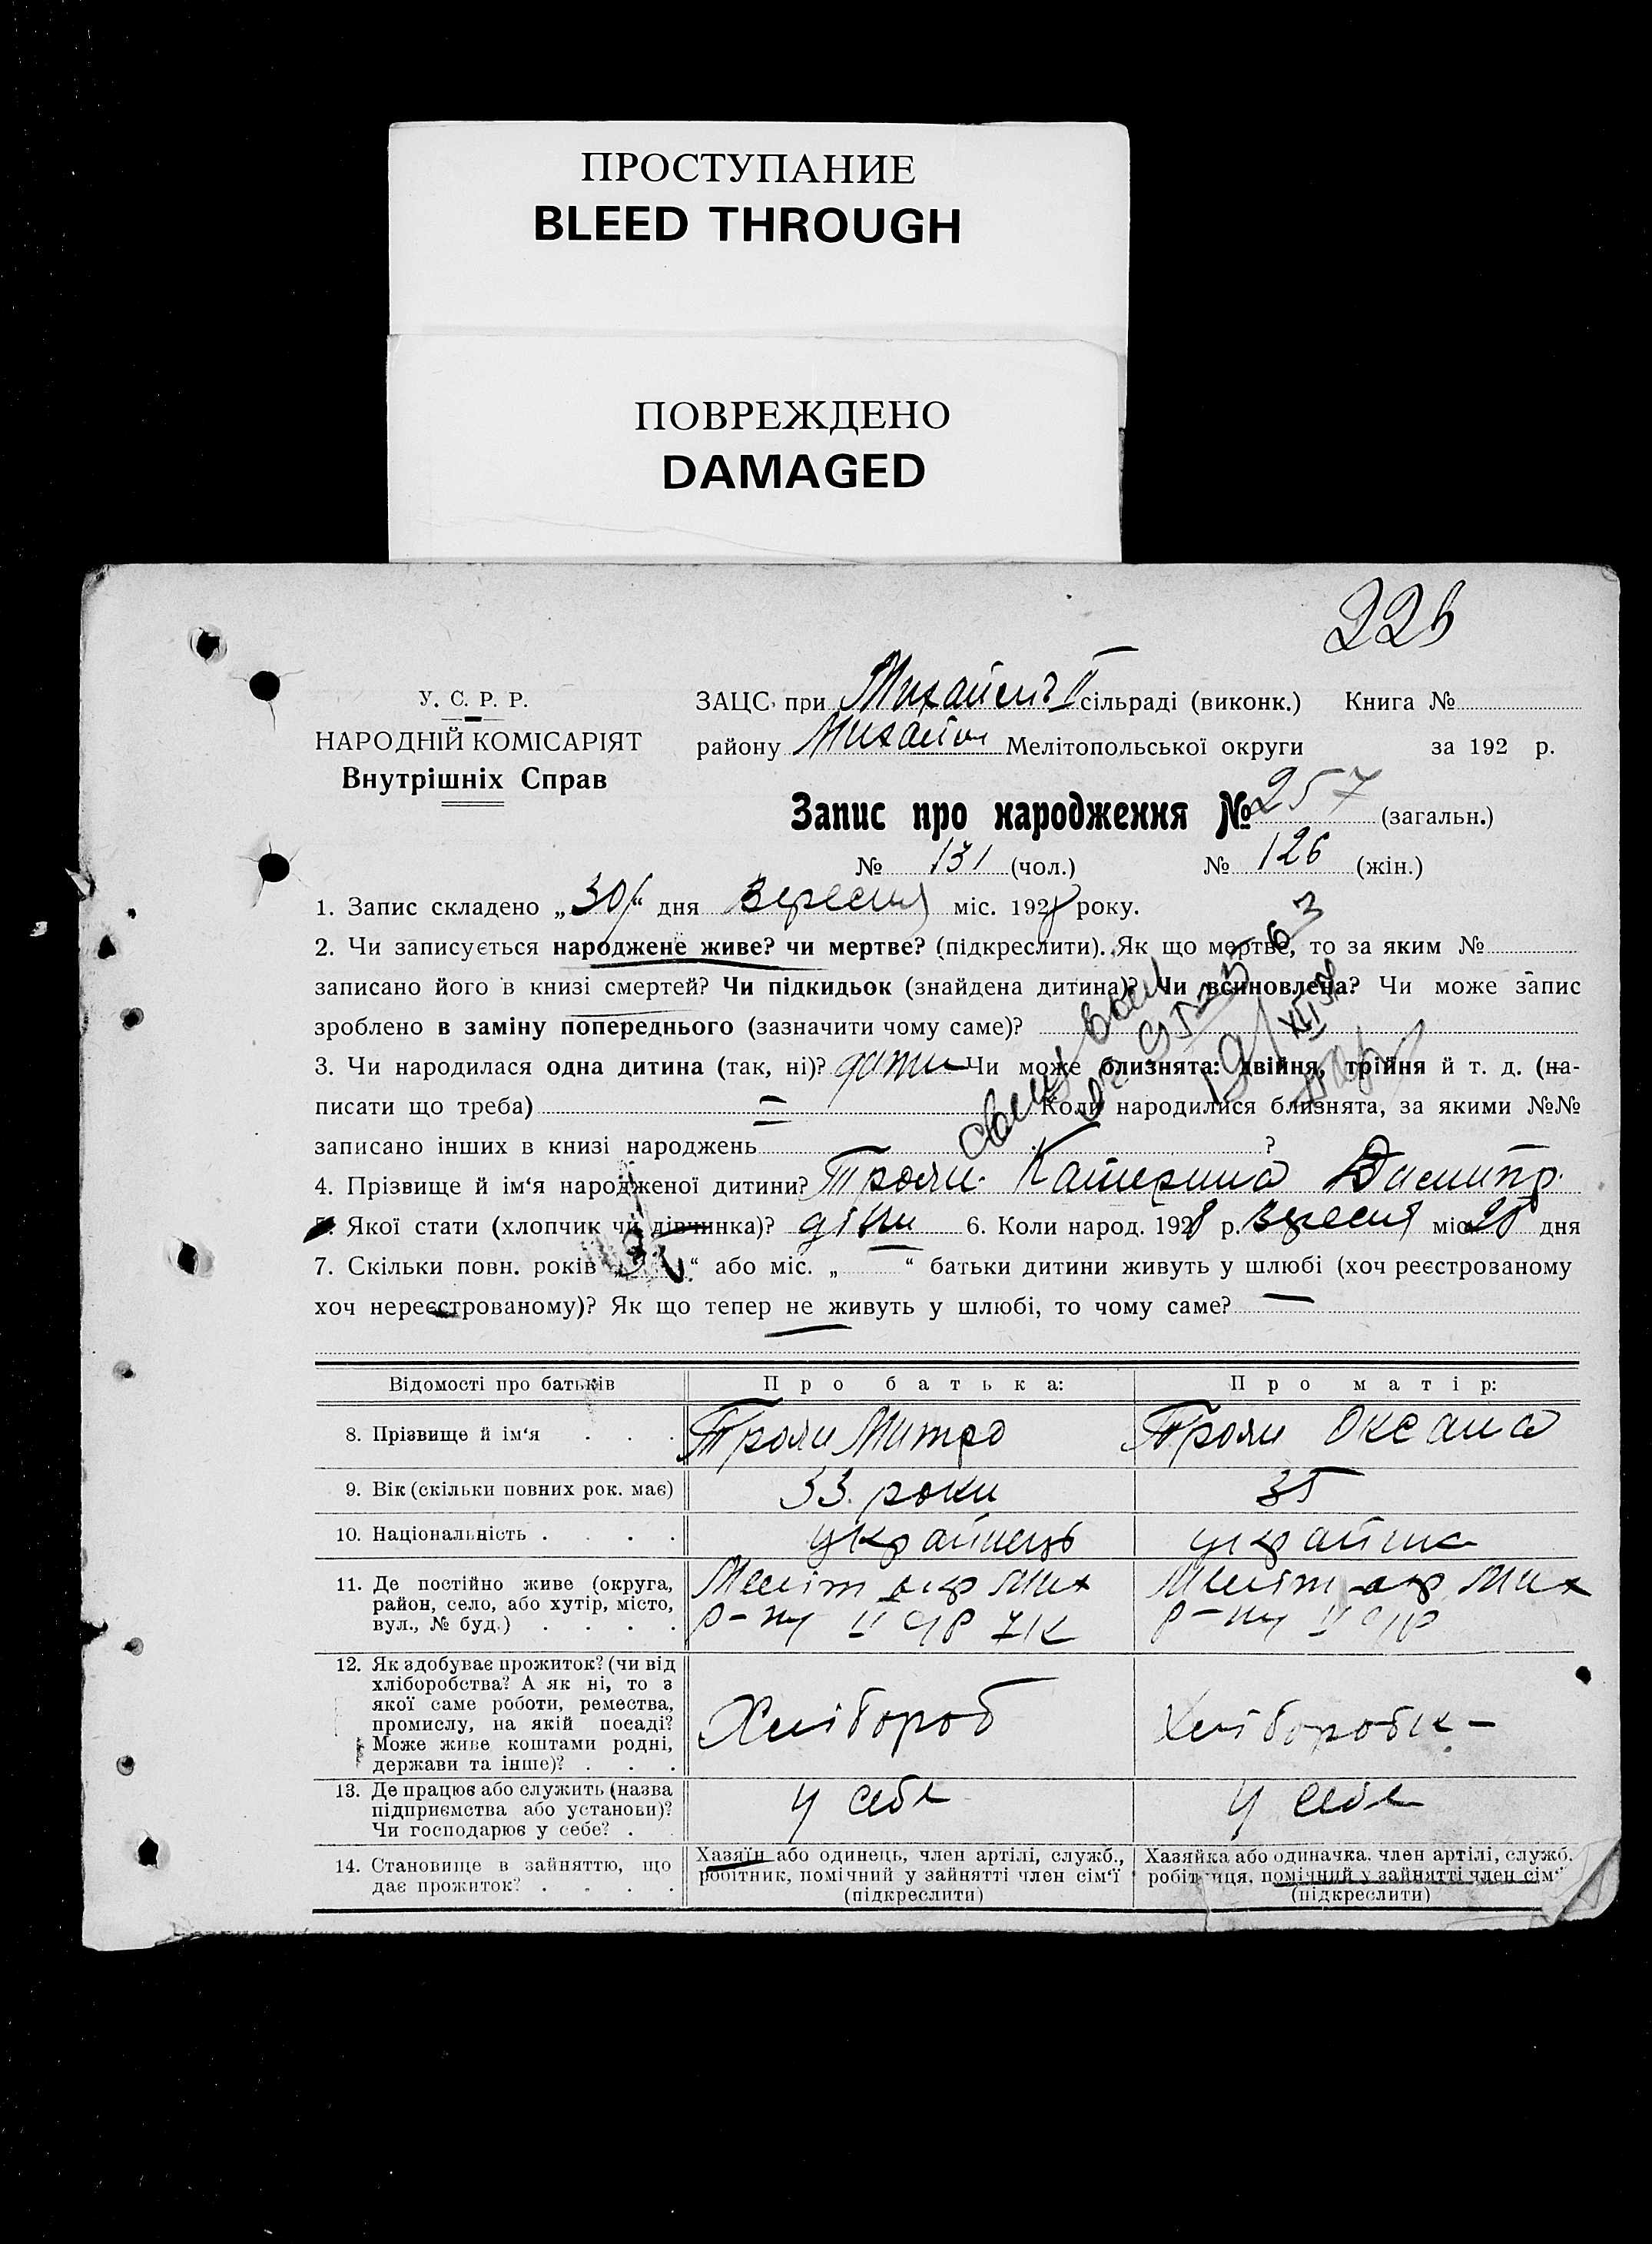 ПРОСТУПАНИЕ
BLEED THROUGH
ПОВРЕЖДЕНО
DAMAGED
226
У. С. Р. Р.
НАРОДНІЙ КОМІСАРІЯТ
Внутрішніх Справ
ЗАЦС при II сільраді (виконк.) Книга №
району Михайл Мелітопольської округи за 192 р.
Запис про народження № 257 (загальн.)
№ 131 (чол.) № 126 (жін.)
1. Запис складено „30“ дня Вересня міс. 1928 року.
2. Чи записується народжене живе? чи мертве? (підкреслити). Як що мертве, то за яким №
записано його в книзі смертей? Чи підкидьок (знайдена дитина)? Чи всиновлена? Чи може запис
зроблено в заміну попереднього (зазначити чому саме)?
3. Чи народилася одна дитина (так, ні)? Чи може близнята: двійня, трійня й т. д. (на-
писати що треба) — Коли народилися близнята, за якими №№
записано інших в книзі народжень ?
4. Прізвище й ім'я народженої дитини? Троян Катерина Димитр.
5. Якої стати (хлопчик чи дівчинка)? дівч 6. Коли народ. 1928 р. Вересня міс. 28 дня
7. Скільки повн. років „ “ або міс. „ “ батьки дитини живуть у шлюбі (хоч реєстрованому
хоч нереєстрованому)? Як що тепер не живуть у шлюбі, то чому саме? —
Відомості про батьків Про батька: Про матір:
8. Прізвище й ім'я . . . Троян Митро Троян Оксана
9. Вік (скільки повних рок. має) 33 роки 35
10. Національність . . . . українець українка
11. Де постійно живе (округа, Меліт окр Мих Меліт окр Мих
район, село, або хутір, місто, р-ну II р-ну II
вул., № буд.) . . . .
12. Як здобуває прожиток? (чи від
хліборобства? А як ні, то з
якої саме роботи, ремества,
промислу, на якій посаді? Хлібороб Хліборобк-
Може живе коштами родні,
держави та інше)? . . .
13. Де працює або служить (назва у себе у себе
підприємства або установи)?
Чи господарює у себе? .
14. Становище в зайняттю, що Хазяїн або одинець, член артілі, служб., Хазяйка або одиначка, член артілі, служб.
дає прожиток? . . . . робітник, помічний у зайнятті член сім'ї робітниця, помічний у зайнятті член сім'
(підкреслити) (підкреслити)